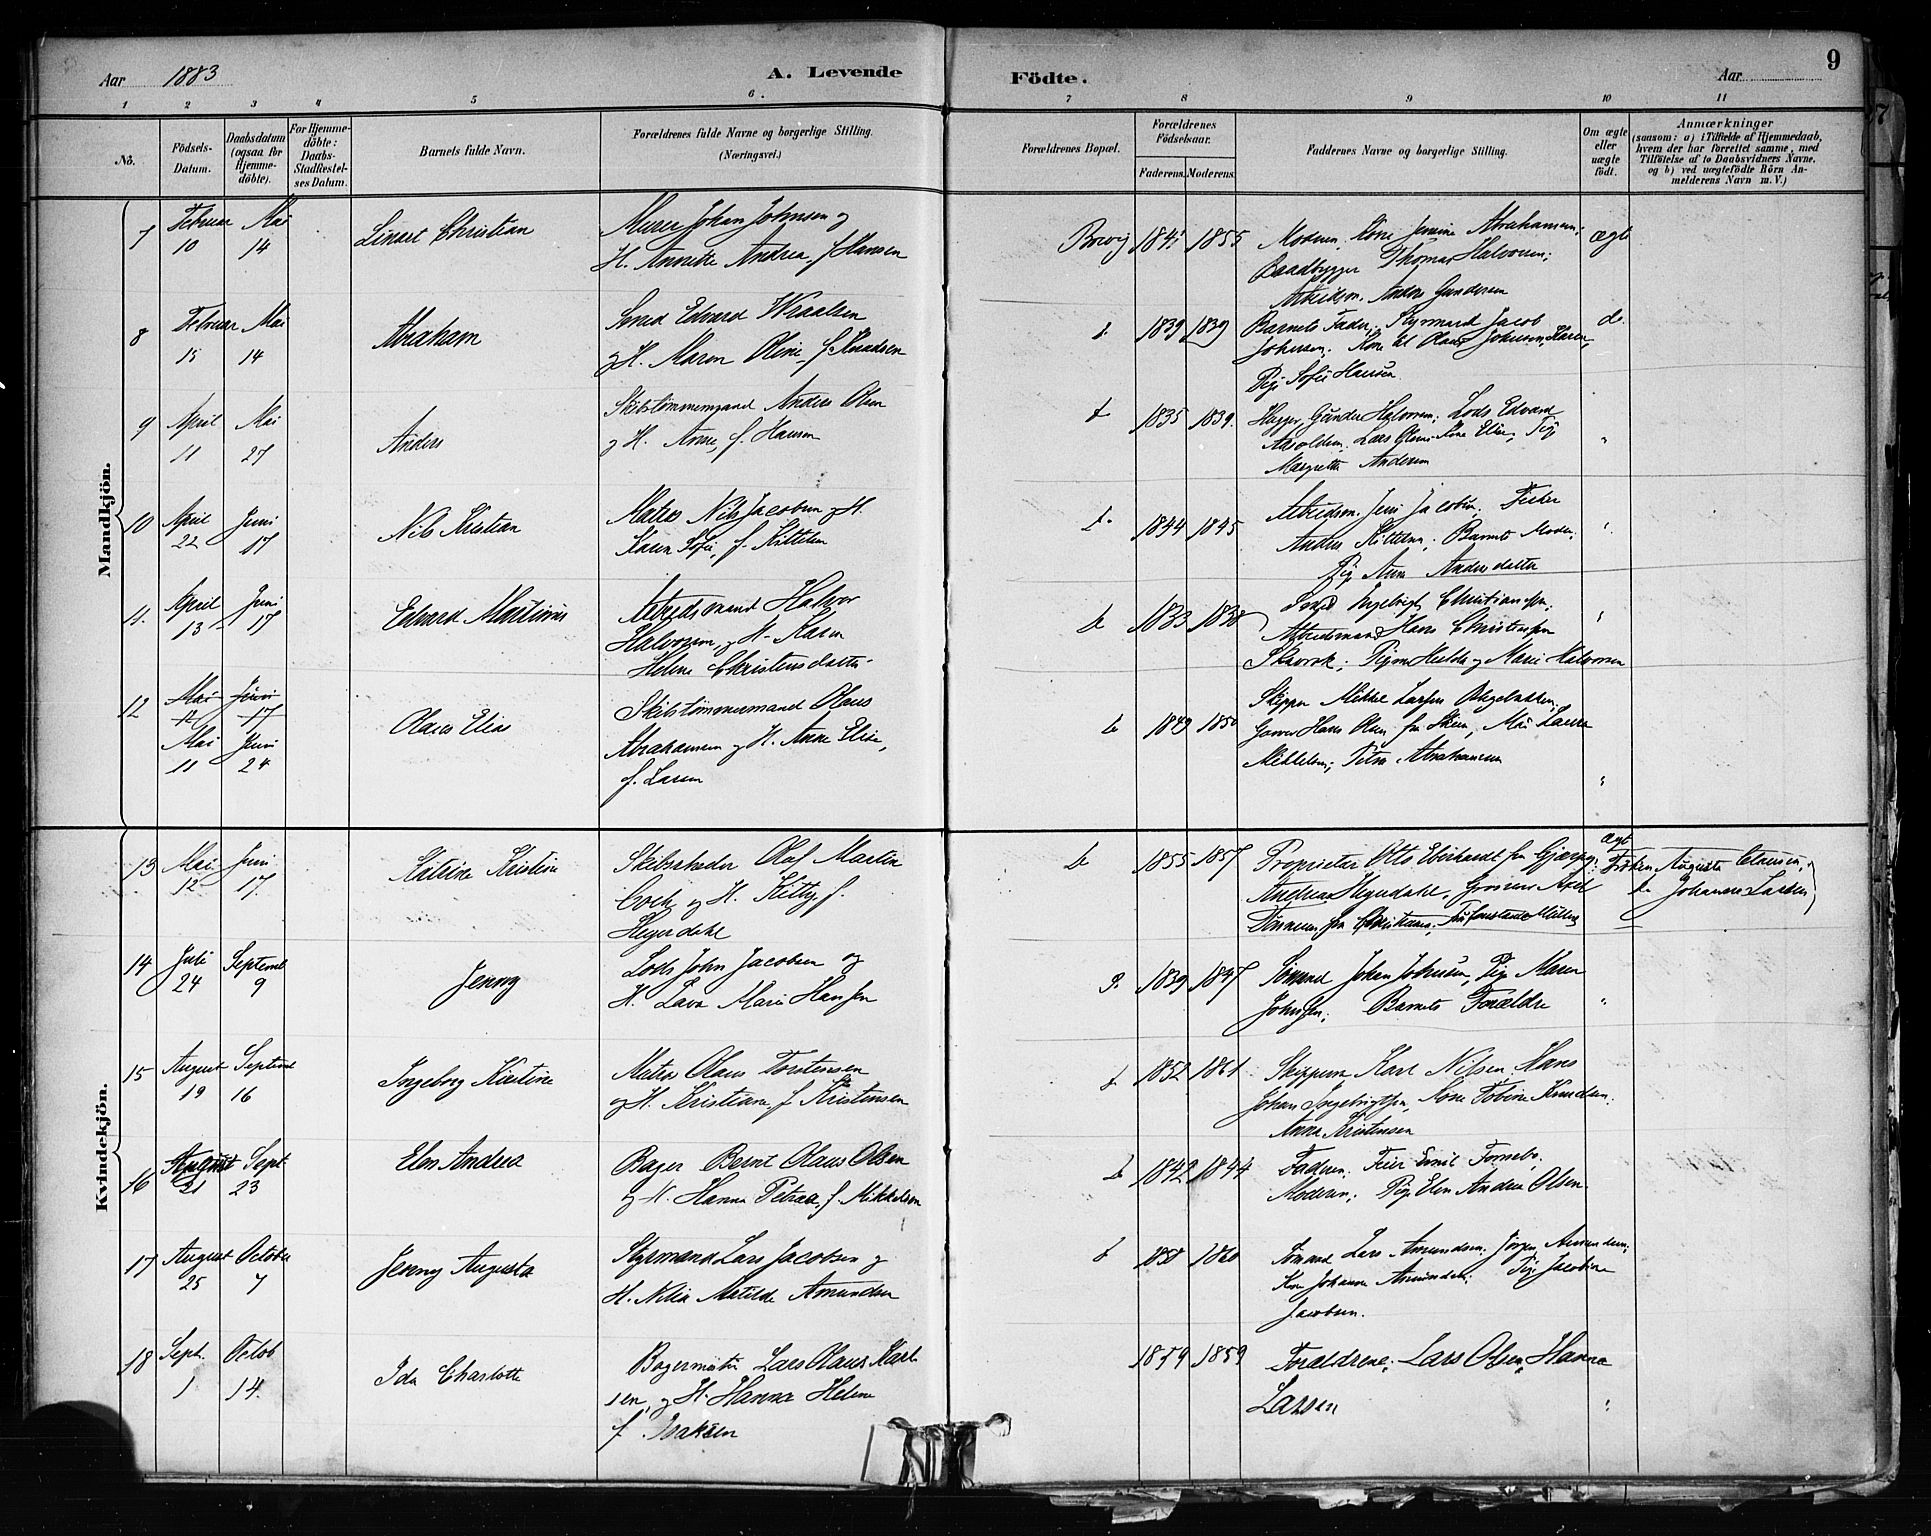 Aar 1883
A. Levende
Födte.
Aar
9
1 2 3 4 5 6. 7 8 9 10 11
No.
Födsels-
Datum.
Daabsdatum
(ogsaa for
Hjemme-
döbte).
For Hjemme-
döbte:
Daabs-
Stadfæstel-
ses Datum.
Barnets fulde Navn.
Forældrenes fulde Navne og borgerlige Stilling.
(Næringsvei.)
Forældrenes Bopæl.
Forældrenes
Födselsaar.
Faderens. Moderens.
Faddernes Navne og borgerlige Stilling.
Om ægte
eller
uægte
födt.
Anmærkninger
(saasom: a) i Tilfælde af Hjemmedaab,
hvem der har forrettet samme, med
Tilföielse af to Daabsvidners Navne,
og b) ved uægtefödte Börn An-
melderens Navn m. V.)
Mandkjön.
7 Februar 10 Mai 14
Linart Christian
Murer Johan Johnsen og
H. Annette Andrea f. Hansen
Borvig 1841 1855
Moderen, Kone Jensine Abrahamsen;
Baadbygger Thomas Halvorsen;
Arbeidsm. Anders Gundersen
ægte
8 Februar 15 Mai 14
Abraham
Smed Edvard Wraalsen
og H. Maren Oline f. Knudsen
d. 1839 1839
Barnets Fader, Styrmand Jacob
Johnsen, Kone Olava Johnsen, Karen,
Pige Sofie Hansen
do.
9 April 11 Mai 27
Anders
Skibstømmermand Anders Olsen
og H. Anne, f. Hansen
d. 1835 1839.
Hugger Gunder Halvorsen; Lods Edvard
Lars Olsens Kone Elise, Pige
Margrethe Andersen
"
10 April 22 Juni 17
Nils Kristian
Matros Nils Jacobsen og H.
Karen Sofie, f. Kittelsen
d. 1844 1845
Arbeidsm. Jens Jacobsen. Fisker
Anders Kittelsen; Barnets Moder,
Pige Anne Andersdatter
"
11. April 13 Juni 17
Edvard Martinius
Arbeidsmand Halvor
Halvorsen og H. Karen
Helene Christensdatter
do 1833 1838
Ingebrigt Christiansen,
Arbeidsmand Hans Christensen
Pigerne Hulda og Marie Halvorsen
"
12 Mai 11 Juni 17
Mai 11 Juni 24
Olaus Elias
Skibstømmermand Olaus
Abrahamsen og H. Anne Elise,
f. Larsen
do 1849 1850
Skipper Mikkel Larsen
Garver Hans Olsen fra Skien,
Mikkelsen; Petra Abrahamsen
"
Kvindekjön.
13 Mai 12 Juni 17.
Katrine Kristine
Skibsrheder Olaf Martin
Coch og H. Kitty, f.
Heyerdahl
do 1855 1857
Proprietær Otto Eberhardt fra Gjerpen;
Andreas Heyerdahl, Grosserer Axel
fra Christiania; Fru Constance Møller
ægt
Frøken Augusta Clausen,
do Johanne Larsen
14 Juli 24 Septemb 9
Jenny
Lods John Jacobsen og
H. Lava Marie Hansen
D. 1839 1847
Sømand Johan Johnsen, Pige Maren
Johnsen; Barnets Forældre
"
15 August 19 Septemb 16
Ingeborg Kirstine
Matros Olaus Torstensen
og H. Kristiane f. Kristensen
d. 1852 1861
Skipperne Karl Nilsen, Hans
Johan Ingebrigtsen, Kone Tobine Knudsen.
Anna Kristensen
16 August 21 Sept. 23
Elen Andrea
Bager Bernt Olaus Olsen
og H. Hanna Petrea, f. Mikkelsen
do 1842 1844
Faderen. Feier Emil Fornebo,
Moderen; Pige Elen Andrea Olsen.
17 August 25 October 7
Jenny Augusta
Styrmand Lars Jacobsen og
H. Nilia Matilde Amundsen
d. 1858 1860
Sømand Lars Amundsen, Jørgen Amundsen;
Kone Johanne Amundsen; Pige Jacobine
Jacobsen.
18 Sept. 1 Octob 14.
Ida Charlotte
Bagermester Lars Olaus Karl
sen, og H. Hanna Helene
f. Isaksen
1854 1859
Forældrene; Lars Olsen, Hanna
Larsen
"